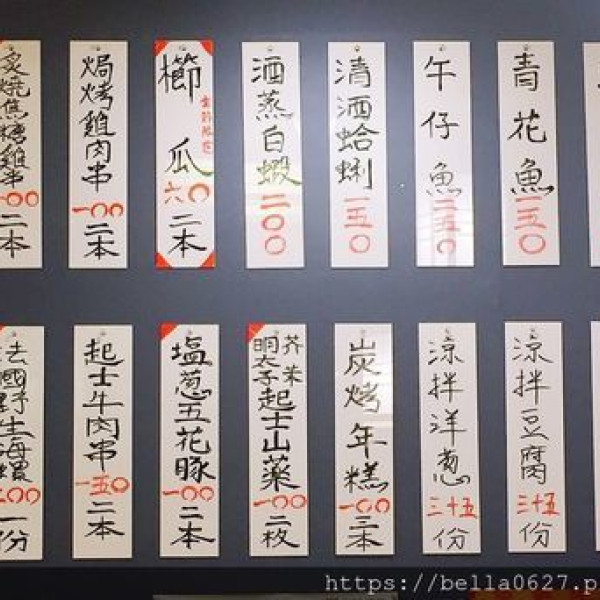 青花魚一五〇
午仔魚二五〇
清酒蛤蜊一五〇
酒蒸白蝦二〇〇
櫛瓜六〇二本
焗烤雞肉串一〇〇二本
炙燒焦糖雞串一〇〇二本
涼拌豆腐三十五份
涼拌洋葱三十五份
炭烤年糕一〇〇三本
芥末
明太子
起士山藥一〇〇二枚
塩葱五花豚一〇〇二本
起士牛肉串一五〇二本
法國野生海螺二〇〇一份
https://bella0627.p